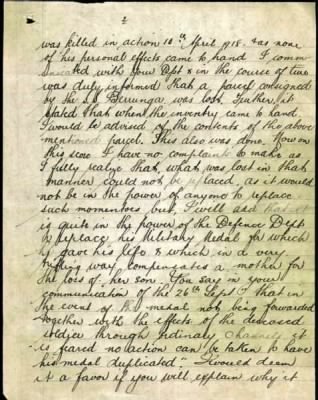 2
was killed in action 10th April 1918. & as none
of his personal effects came to hand I comm
unicated with your Dept & in the course of time
was duly informed that a parcel consigned
by the S.S. Barunga was lost. Further it
stated that when the inventry came to hand
I would be advised of the contents of the above
mentioned parcel. This also was done. Now on
this score I have no complaints to make as
I fully realize that, what was lost in that
manner could not be replaced, as it would
not be in the power of anyone to replace
such momentoes but, I will add that it
is quite in the power of the Defence Dept
to replace his Military Medal for which
he gave his life & which in a very
trifling way compensates a mother for
the loss of her son. You say in your
communication of the 26th Sept. "that in
the event of the medal not being forwarded
together with the effects of the deceased
soldier through ordinary channels it
is feared no action can be taken to have
his medal duplicated." I would deem
it a favor if you will explain why it